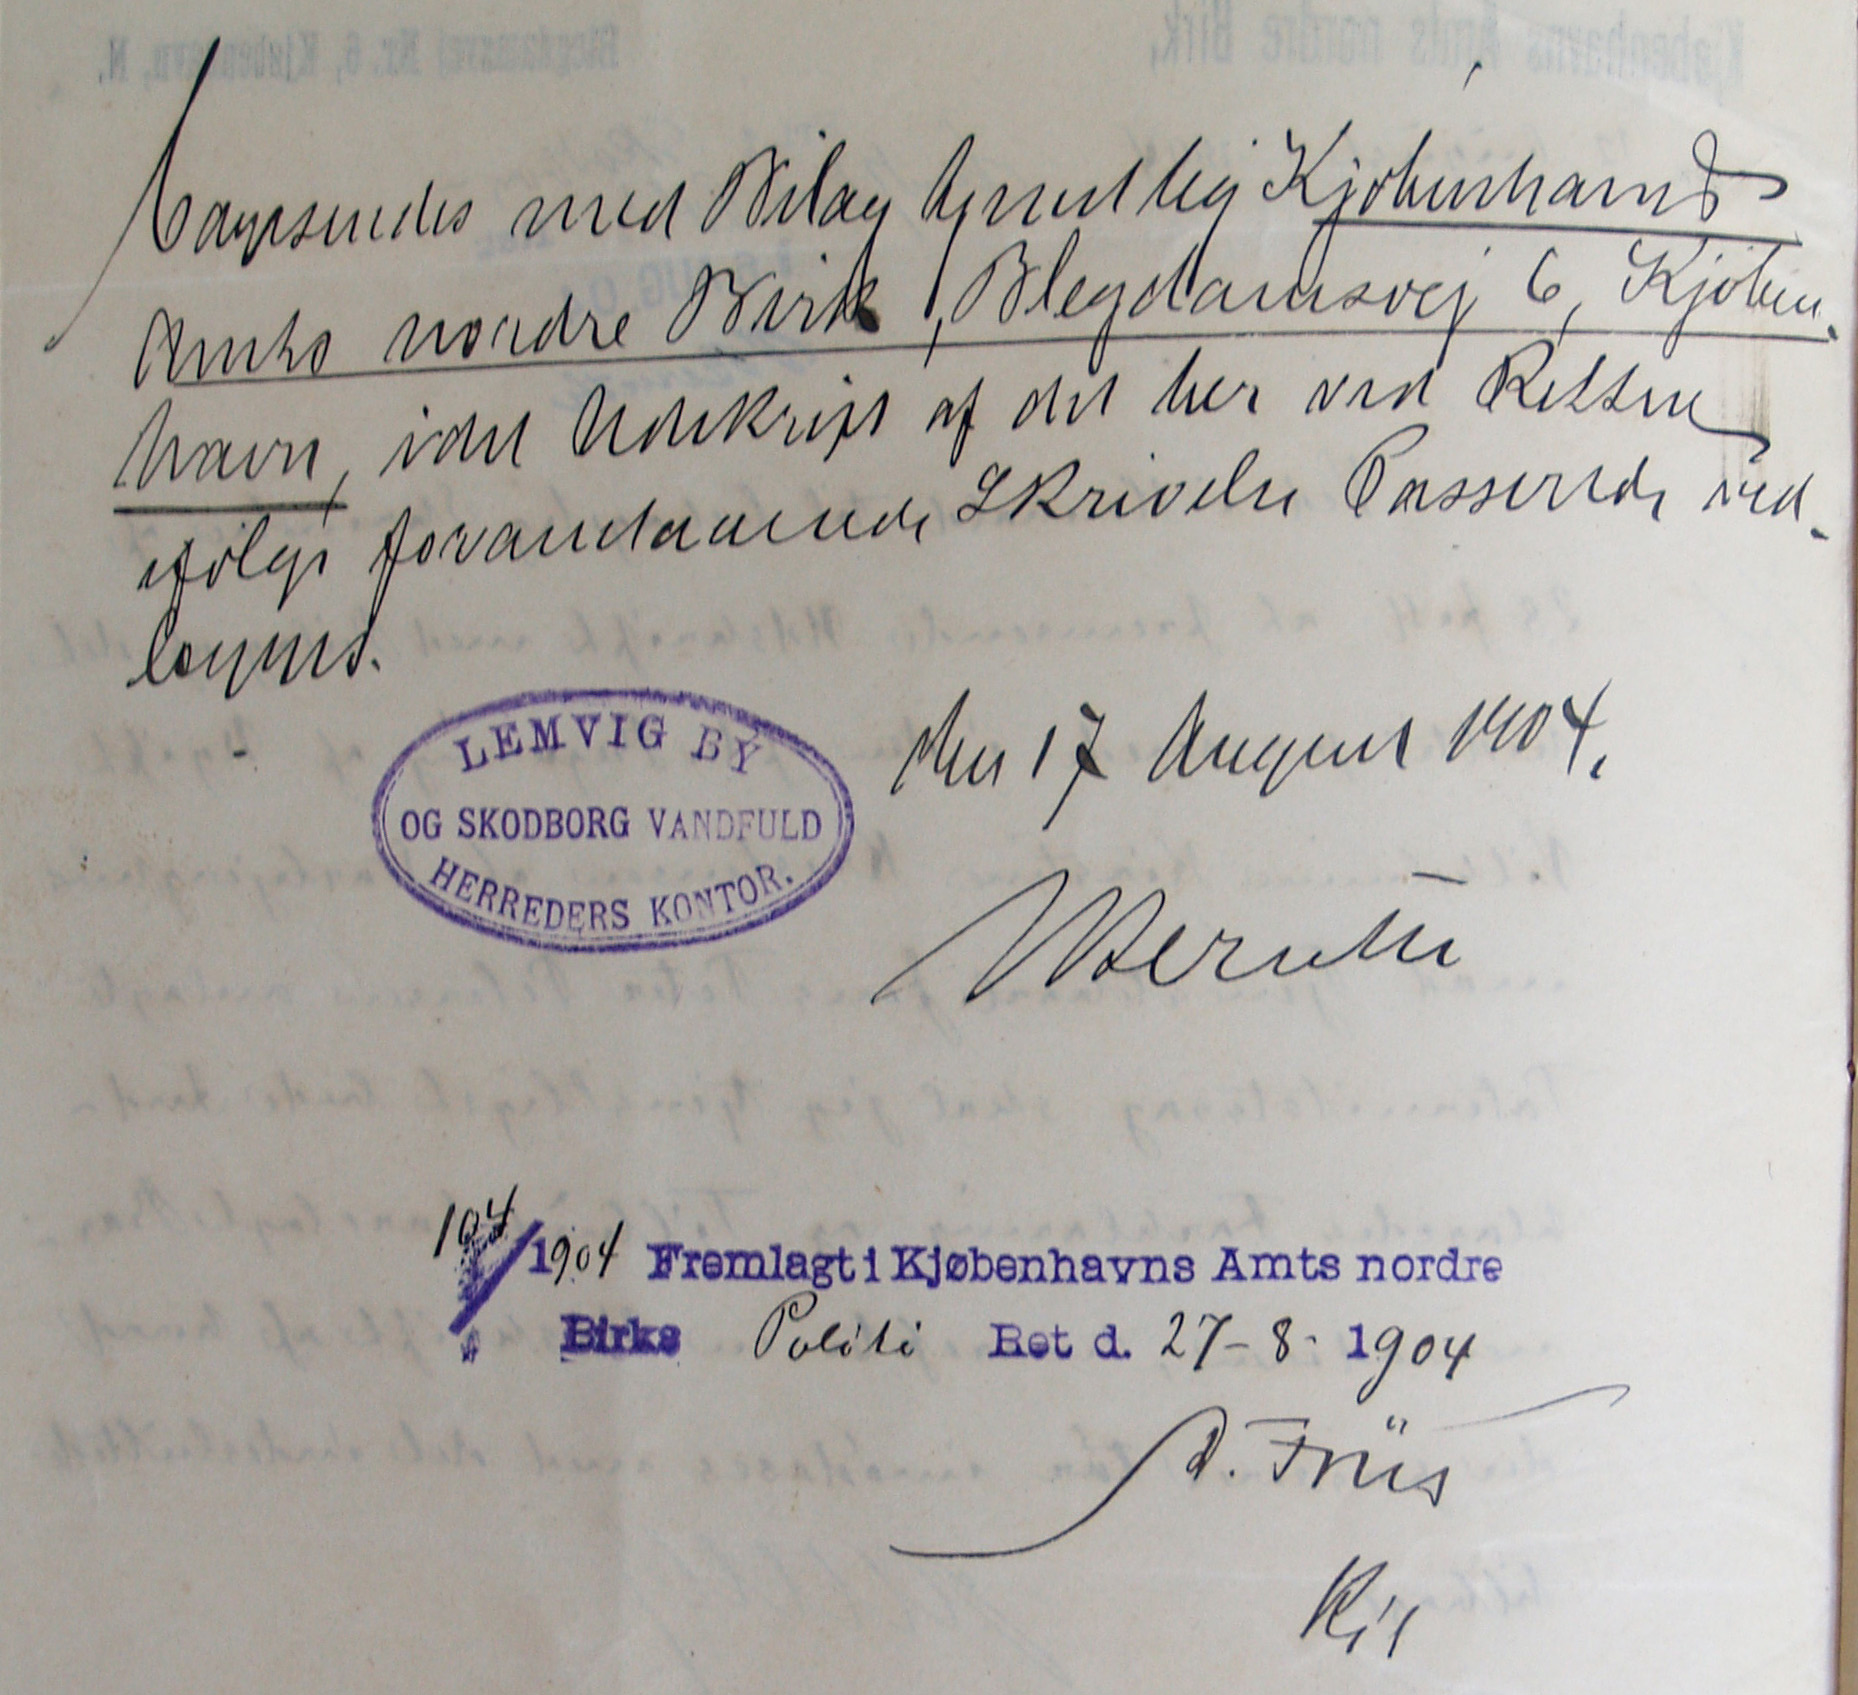 Tagesendes med Bilag tjenstlig Kjøbenhavns
Amts nordre Birk, Blegdamsvej 6, Kjøben-
havn, idet Udskrift af det her ved Retten
ifølge foranstaaende Skrivelse Passerede ved-
lægges.
den 17 August 1904.
LEMVIG BY
OG SKODBORG VANDFULD
HERREDERS KONTOR.
104/1904 Fremlagt i Kjøbenhavns Amts nordre
Birks Politi Ret d. 27-8-1904
A. Friis